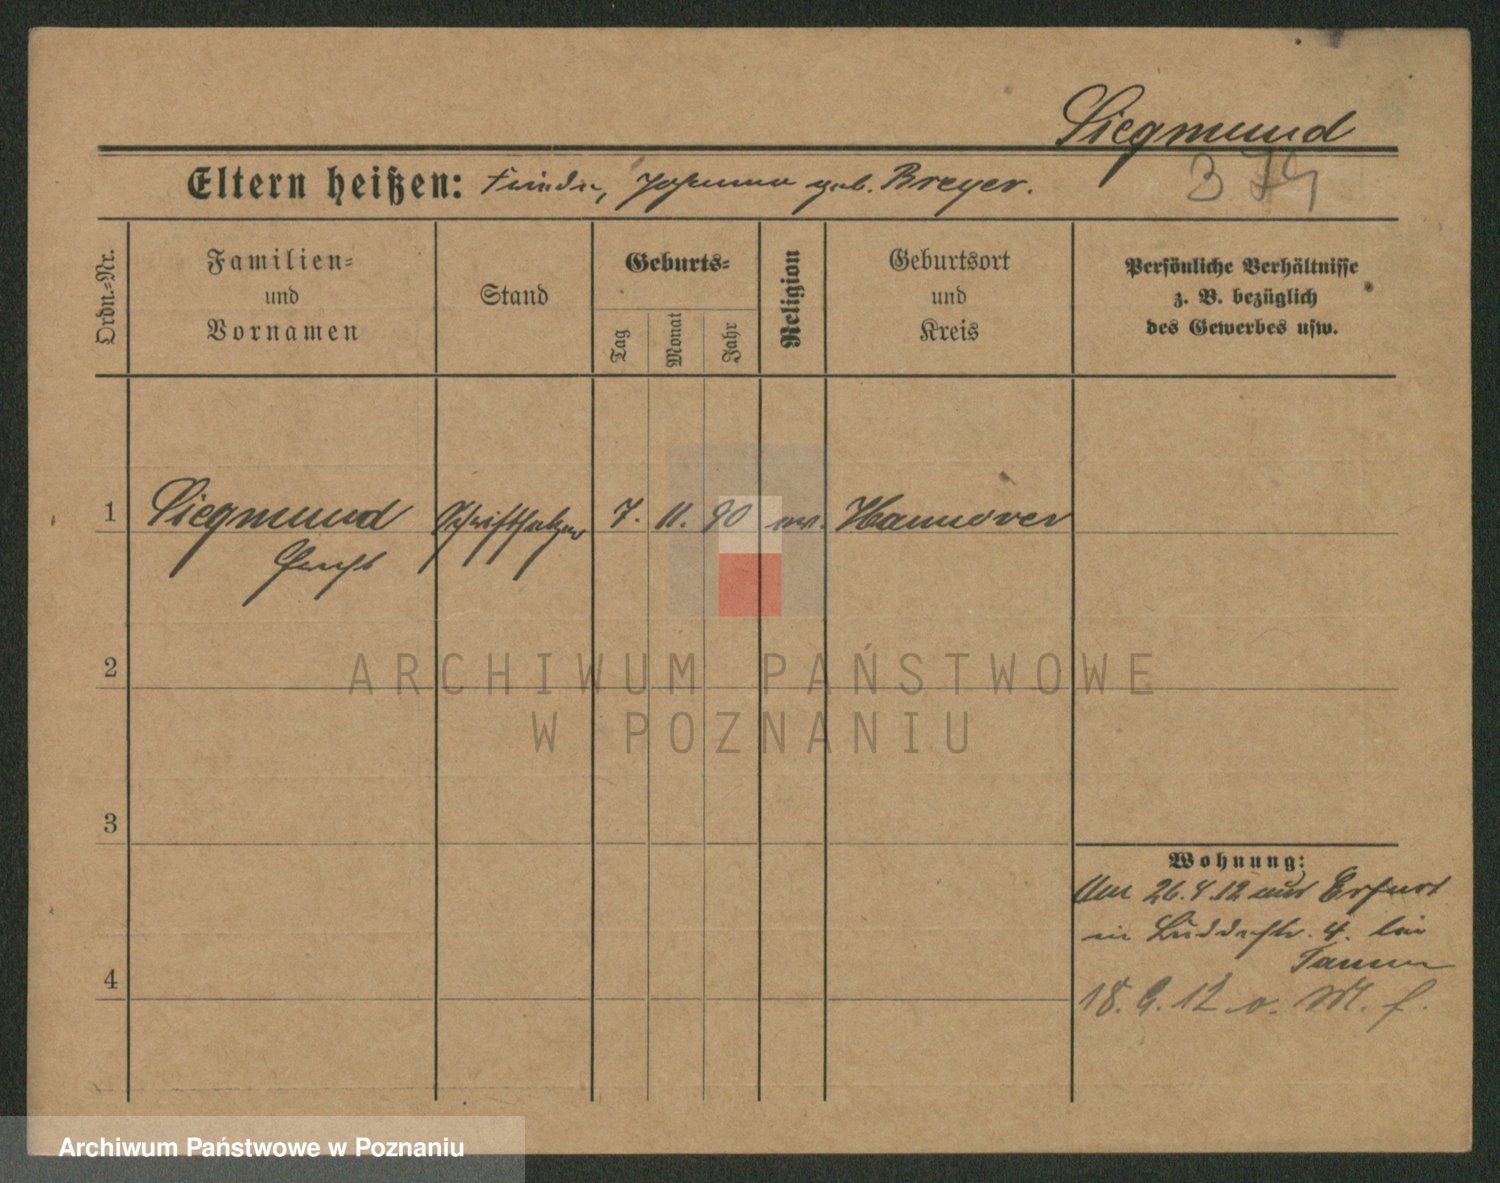 Siegmund
Eltern heißen: geb. Breyer.
3 79
Ordn.-Nr.
Familien-
und
Vornamen
Stand
Geburts-
Tag
Monat
Jahr
Religion
Geburtsort
und
Kreis
Persönliche Verhältnisse
z. B. bezüglich
des Gewerbes usw.
1 Siegmund Schriftsetzer 7. 11. 90 ev. Hannover
2
ARCHIWUM PAŃSTWOWE
W POZNANIU
3
Wohnung:
Am 26.4.12 aus Erfurt
in 4. bei
4
18. 9. 12 v. M. f.
Archiwum Państwowe w Poznaniu